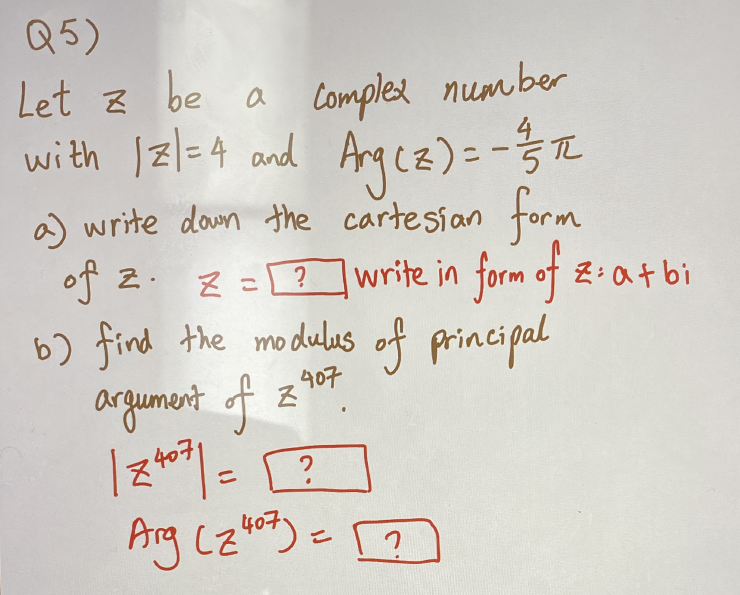 Q5)
Let z be a complex number
with |z|=4 and Arg(z)=-4/5 π
a) write down the cartesian form
of z. z = ? write in form of z: a+bi
b) find the modulus of principal
argument of z^407.
|z^407| = ?
Arg(z^407) = ?